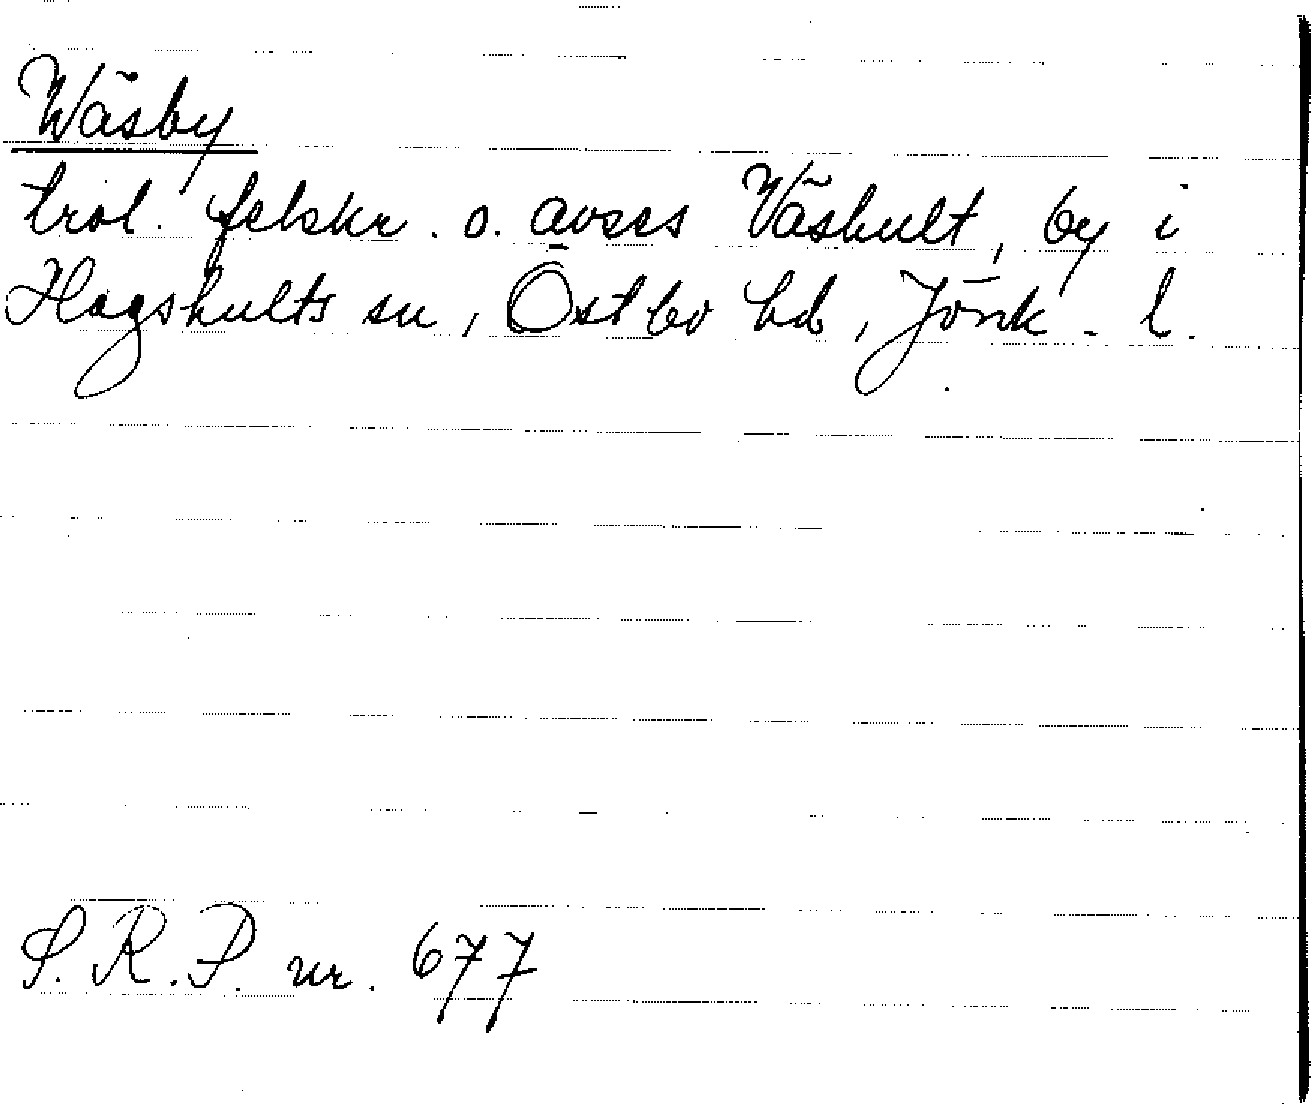 Wäsby
trol. felskr. o. avses Väshult, by i
Hagshults sn, Östbo hd, Jönk. l.
S.R.P. nr. 677